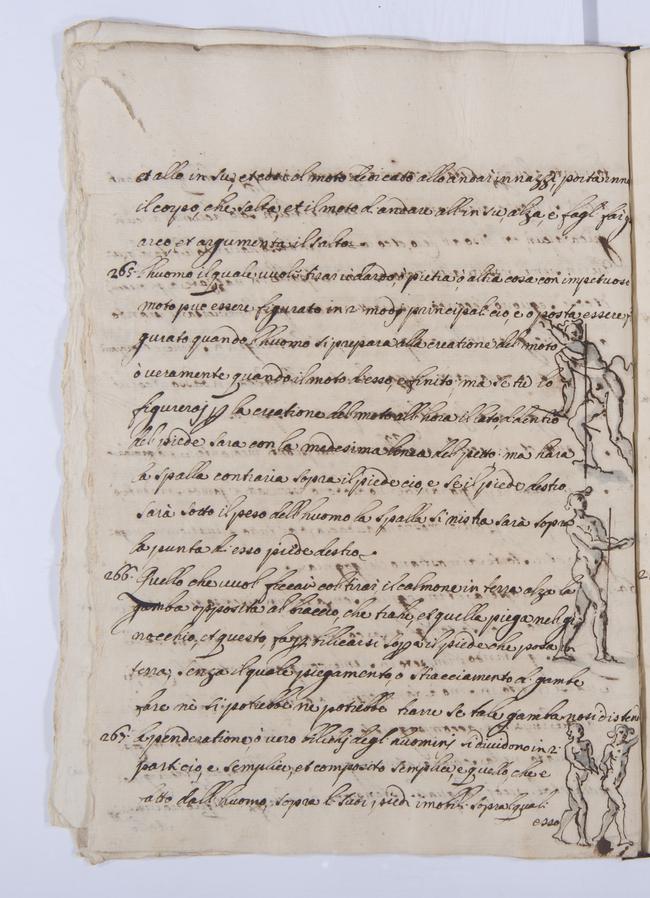 et alto in su, et cosi el moto dedicato allo andar innazzi, porta inn
il corpo che salta, et il moto d'andare all'in su, alza, e fagl' far g
arco, et argumenta il salto.
265. l'huomo il quale vuole tirar dardo, ò pietra, ò altra cosa con impetuoso
moto puo essere figurato in 2 modi principali cio, e o posta essere fi
gurato quando l'huomo si prepara alla creatione del moto
ò veramente quando il moto d'esso, e finito; ma se tu lo
figurerai la creatione del moto all'hora il lato di dentro
del piede sara con la medesima linea del petto. ma hara
la spalla contraria sopra il piede cio, e se il piede destro
sarà sotto il peso dell'huomo la spalla sinistra sarà sopra
la punta di esso piede destro.
266. Quello che vuol ficcar ò tirar il calmone in terra alza la
gamba opposita al braccio, che tira, et quella piega nel gi
nocchio, et questo, fa bilicarsi sopra il piede che posa in
terra, senza il quale piegamento o stracciamento di gambe
fare nè si potrebbe nè potrebbe trarre se tale gamba non si disten
267. la penderatione ò vero bilichi degl'huomini si dividono in 2
parti cio, e semplice, et composito semplice, e quello, che e
fatto dall'huomo, sopra li suoi piedi imobili sopra quali
esso